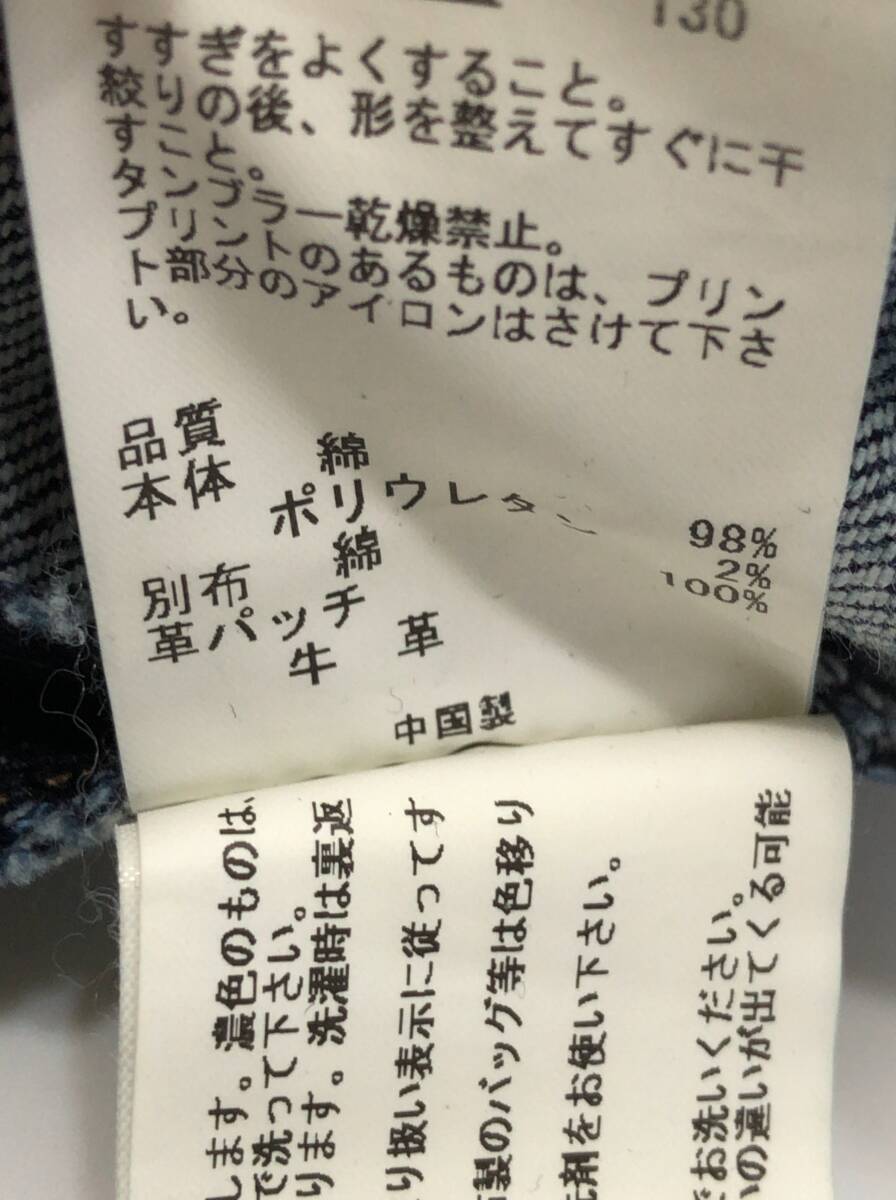 130
すすぎをよくすること。
絞りの後、形を整えてすぐに干
すこと。
タンブラー乾燥禁止。
プリントのあるものは、プリン
ト部分のアイロンはさけて下さ
い。
品質
本体 綿 98%
ポリウレタン 2%
別布 綿 100%
革パッチ
牛革
中国製
します。濃色のものは、
で洗って下さい。
ります。洗濯時は裏返
り扱い表示に従ってす
製のバッグ等は色移り
剤をお使い下さい。
でお洗いください。
の違いが出てくる可能